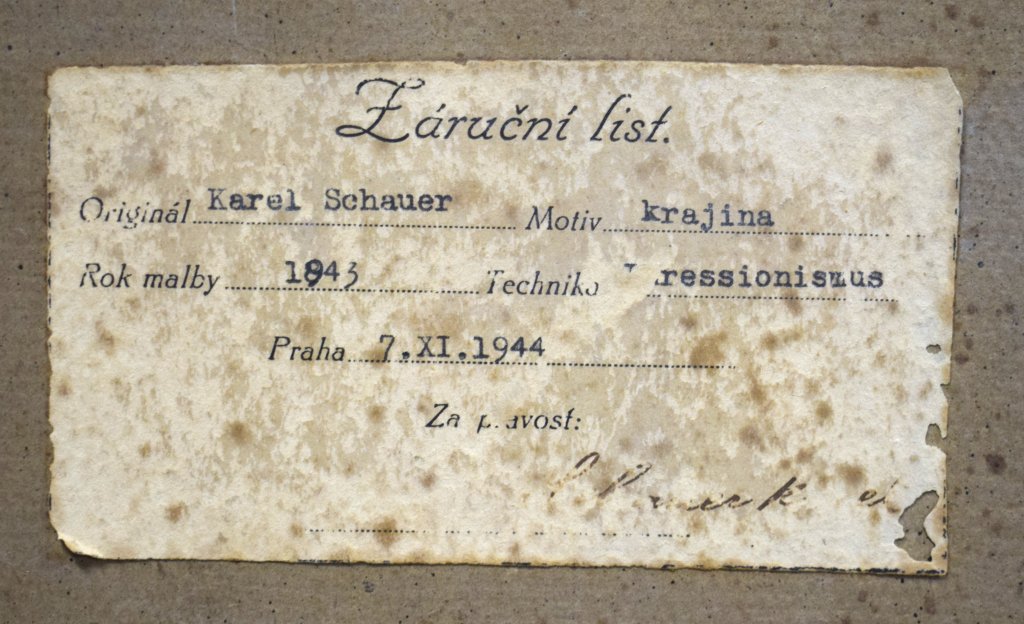 Záruční list.
Originál Karel Schauer Motiv krajina
Rok malby 1943 Technika ressionismus
Praha 7.XI.1944
Za pravost: